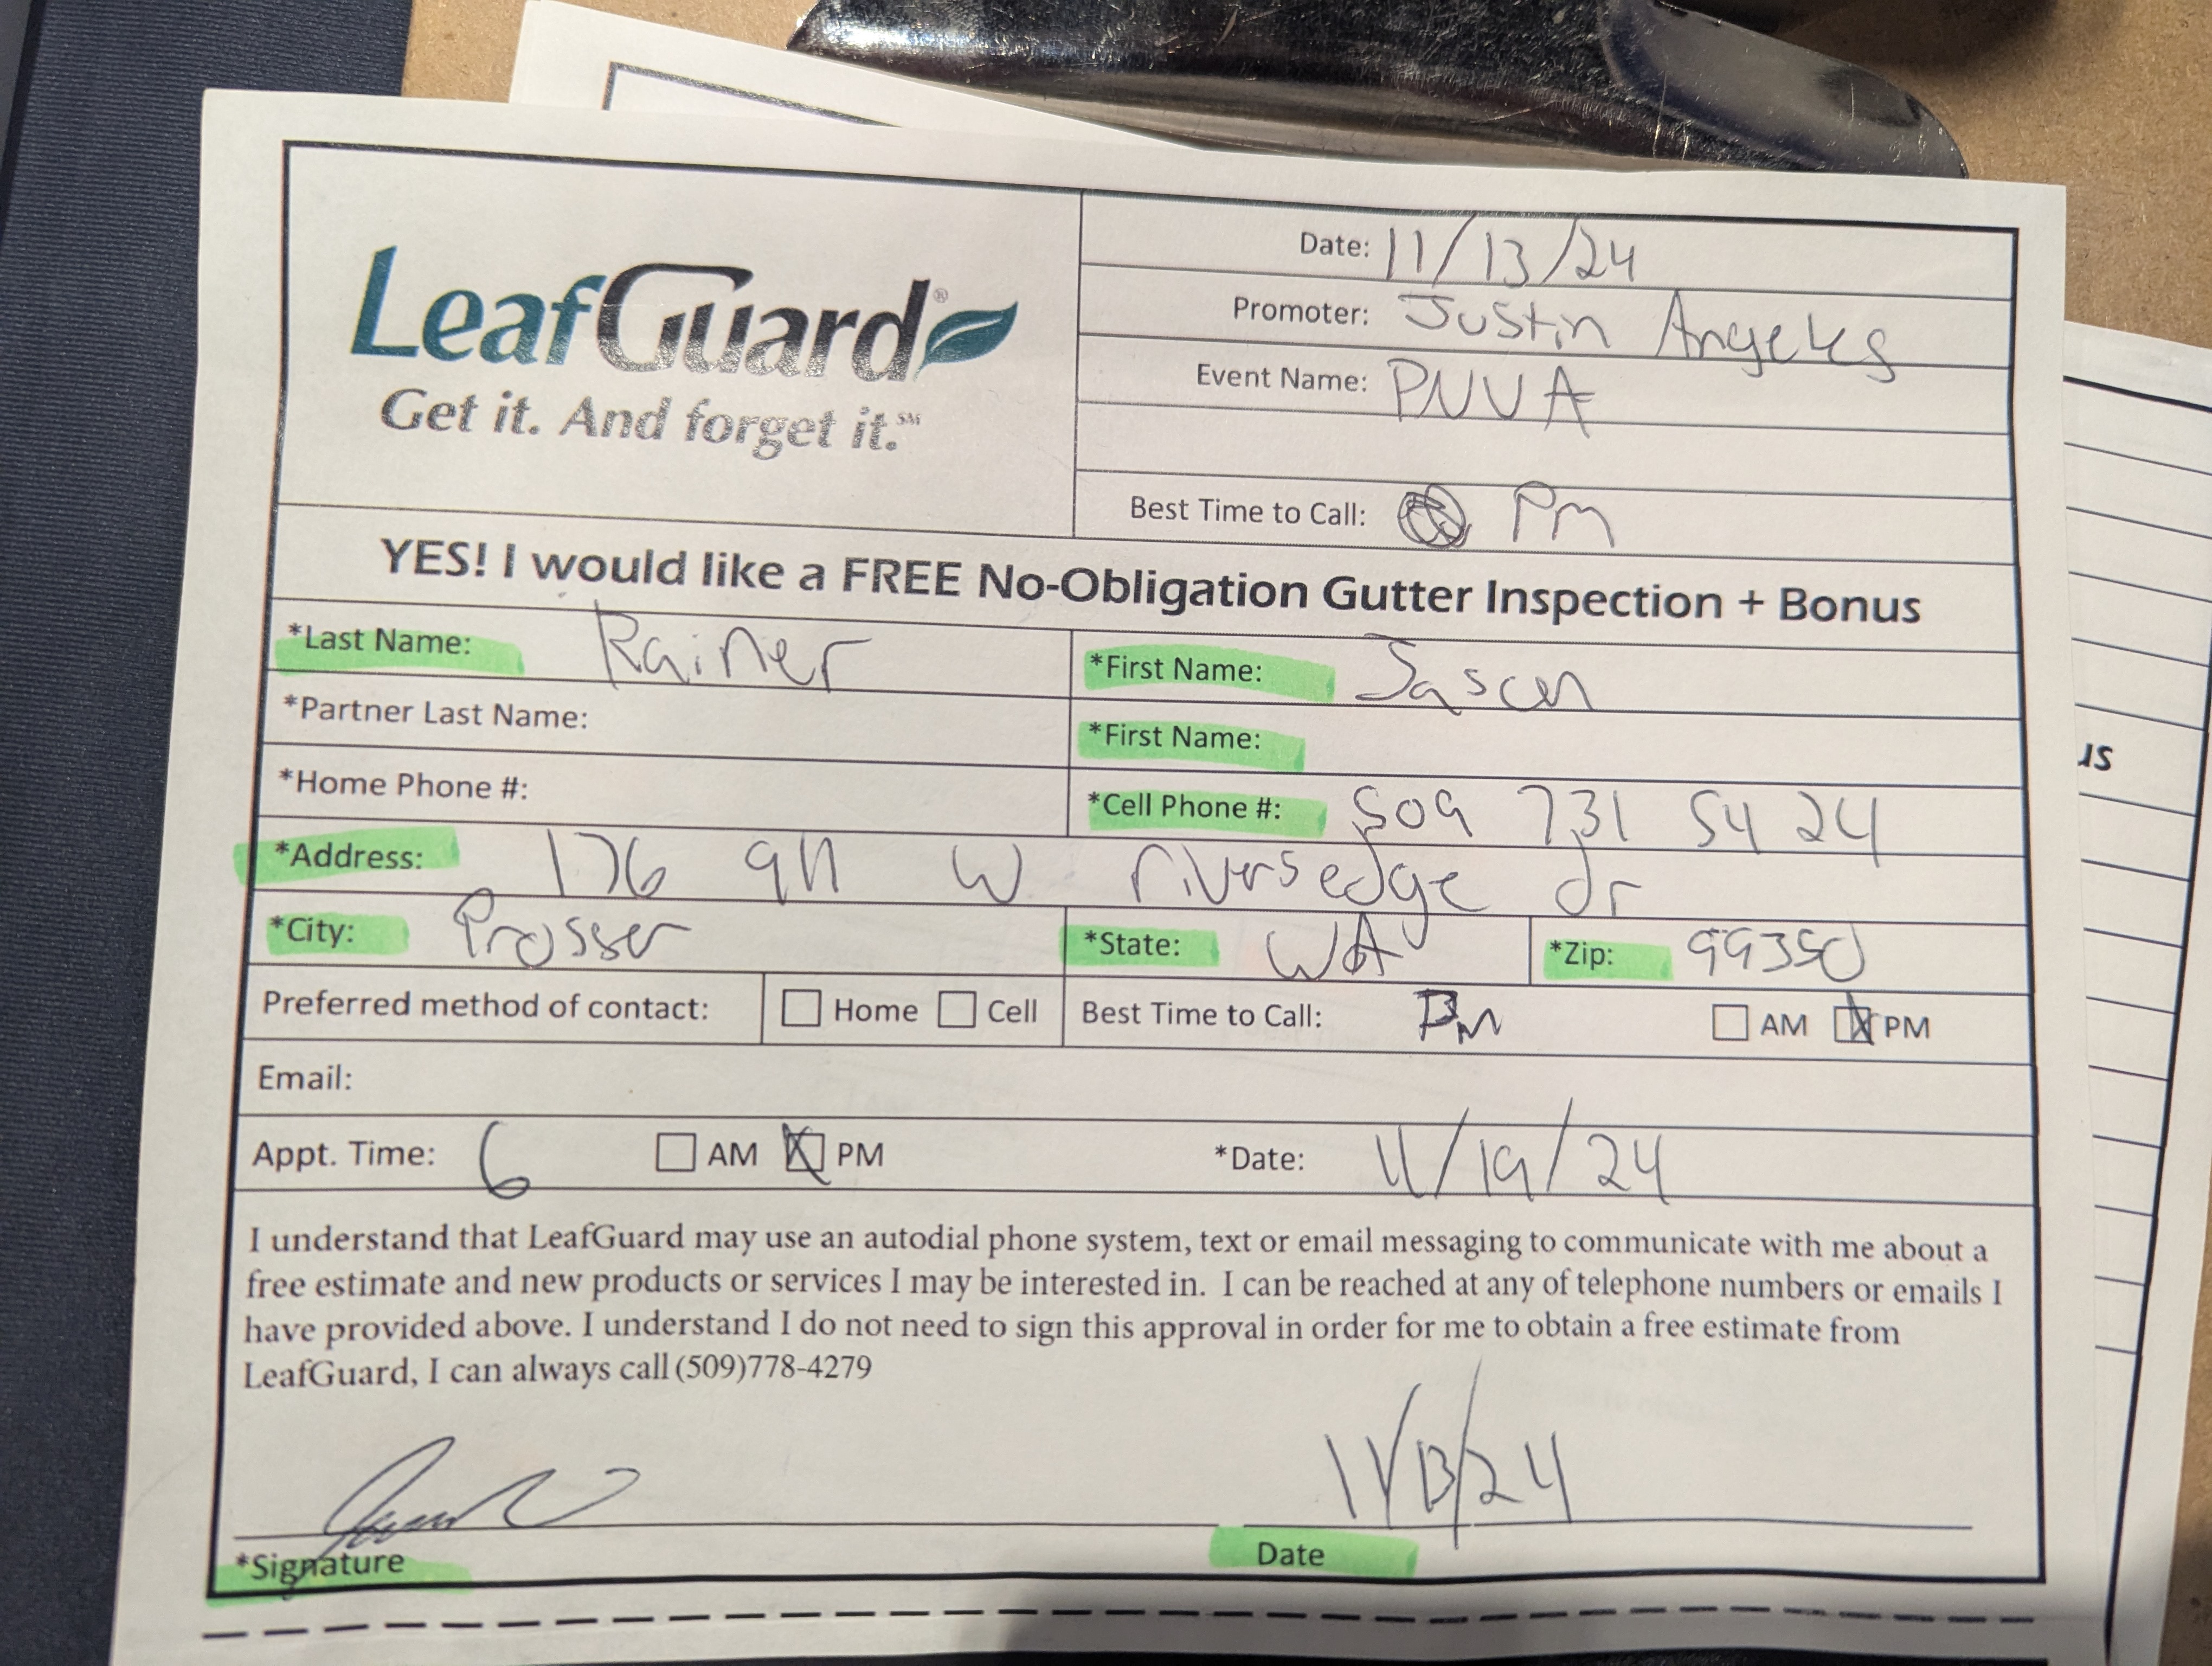 LeafGuard®
Get it. And forget it.℠
Date: 11/13/24
Promoter: Justin Angeles
Event Name: PNVA
Best Time to Call: Pm
YES! I would like a FREE No-Obligation Gutter Inspection + Bonus
*Last Name: Rainer *First Name: Jason
*Partner Last Name: *First Name:
*Home Phone #: *Cell Phone #: 509 731 5424
*Address: 176 W riversedge dr
*City: Prosser *State: WA *Zip: 99350
Preferred method of contact: Home Cell Best Time to Call: Pm AM PM
Email:
Appt. Time: 6 AM PM *Date: 11/19/24
I understand that LeafGuard may use an autodial phone system, text or email messaging to communicate with me about a
free estimate and new products or services I may be interested in. I can be reached at any of telephone numbers or emails I
have provided above. I understand I do not need to sign this approval in order for me to obtain a free estimate from
LeafGuard, I can always call (509)778-4279
11/13/24
*Signature Date
us